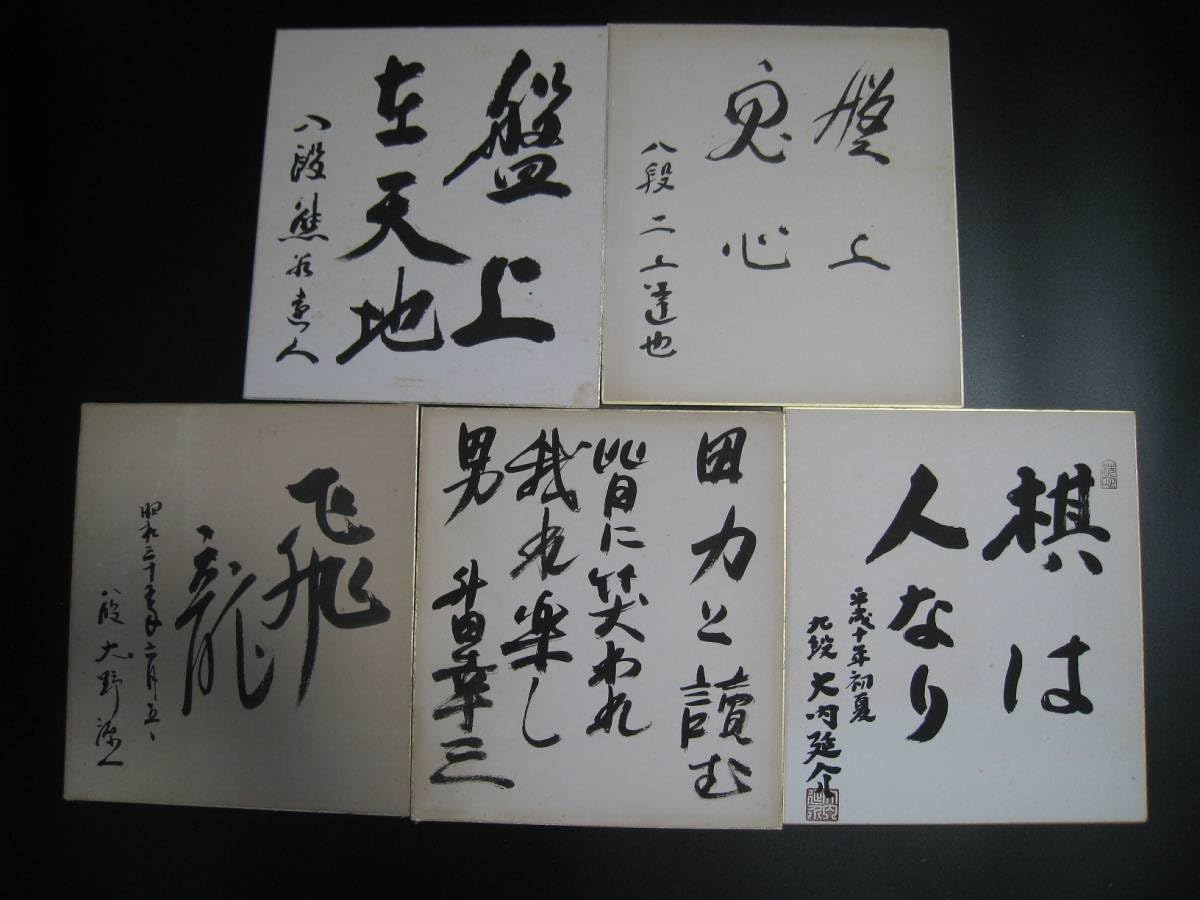 盤上
鬼心
八段 二上達也
盤上
在天地
八段熊谷達人
棋は
人なり
平成十年初夏
九段 大内延介
田力と讀む
皆に笑われ
我れ楽し
男 升田幸三
飛
龍
八段 大野源一